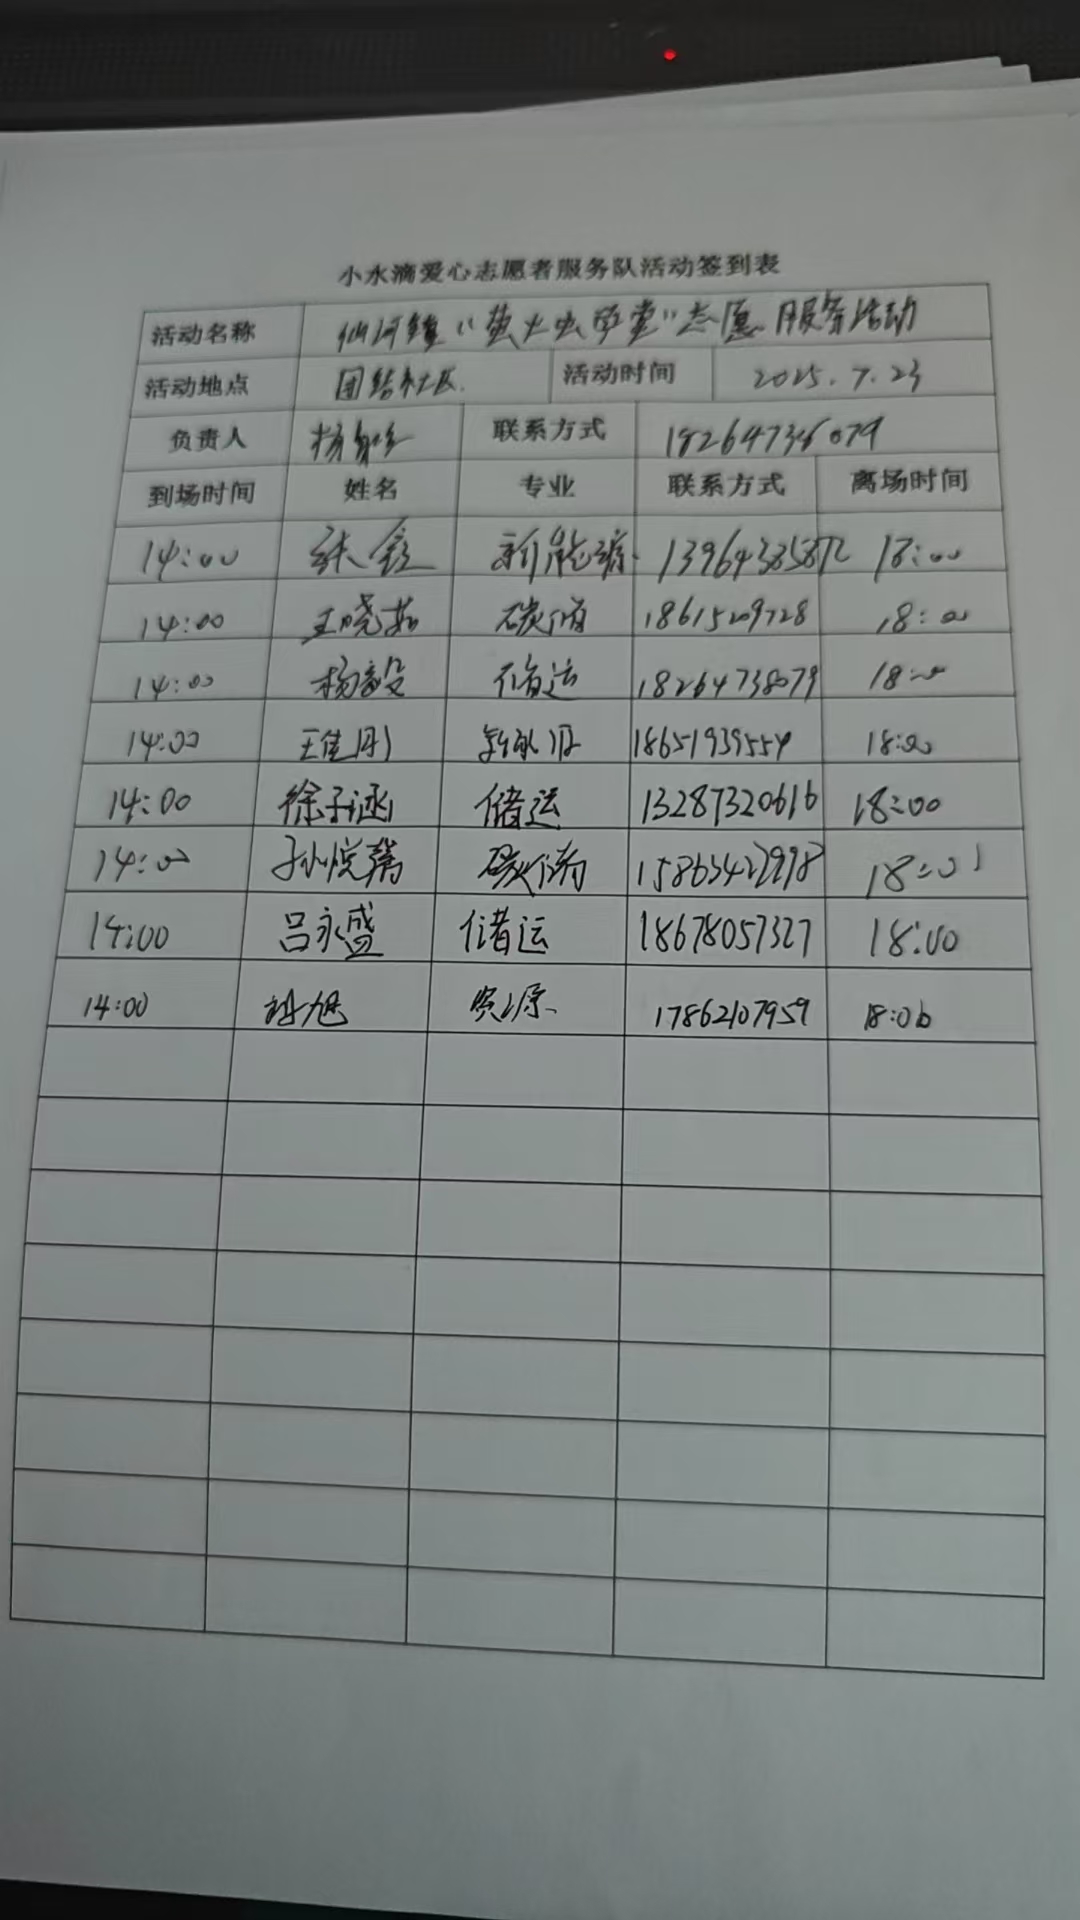 小水滴爱心志愿者服务队活动签到表
活动名称 仙河镇“萤火虫学堂”志愿服务活动
活动地点 团结社区. 活动时间 2025.7.23
负责人 杨 联系方式
到场时间 姓名 专业 联系方式 离场时间
14:00 张鑫 新能源. 18:00
14:00 王晓茹 碳储 18:00
14:00 杨毅 储运 18264738079 18:00
14:00 王佳 18651939554 18:00
14:00 徐子涵 储运 13287320616 18:00
14:00 孙悦 碳储 18:00
14:00 吕永盛 储运 18678057327 18:00
14:00 旭 资源 17862107959 18:00